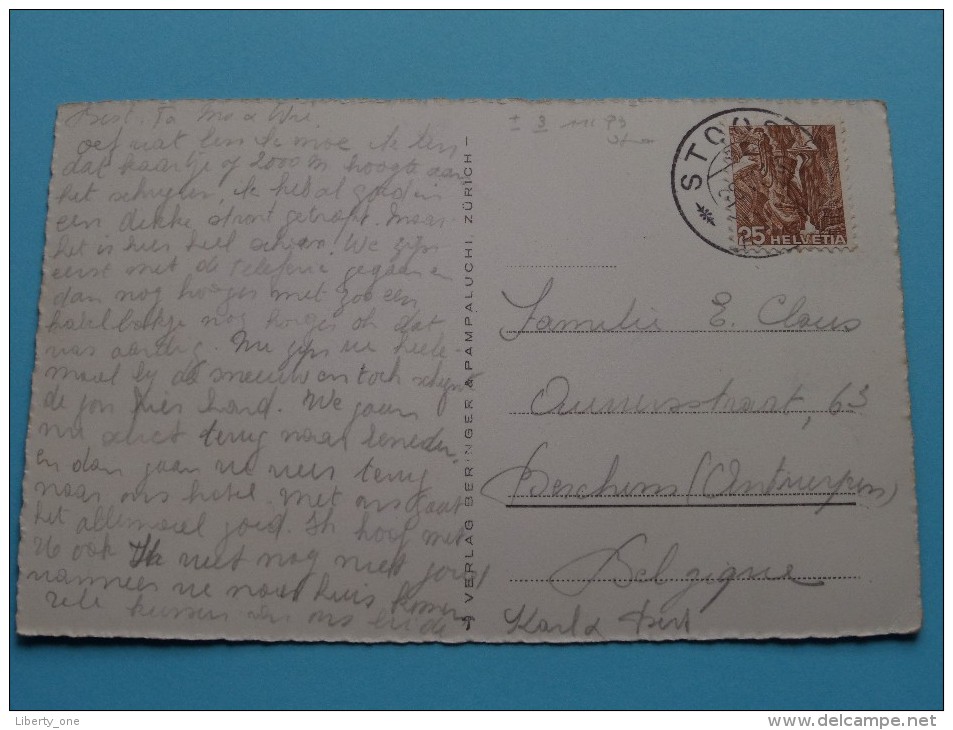 Best. Pa Ma &
oef wat ben ik moe ik ben
dat kaartje op 2000 m hoogte aan
het schrijven, ik heb al goed in
een dikke stront getrapt. Maar
het is hier heel schoon! We zijn
eerst met de Teleferie gegaan en
dan nog hooger met zoo een
kabelbakje nog hooger oh dat
was aardig. Nu zijn we heele-
maal bij de sneeuw en toch schijnt
de zon hier hard. We gaan
nu direct terug naar beneden
en dan gaan we weer terug
naar ons hotel. Met ons gaat
het allemaal goed. Ik hoop met
U ook Ik weet nog niet goed
wanneer we naar huis komen
vele kussen van ons beide
VERLAG BERINGER & PAMPALUCHI, ZÜRICH
± 9
STOOS
25 HELVETIA
Familie E. Claus
straat, 63
(Antwerpen)
Belgique
Karl & Bert
Liberty_one
delcampe.net